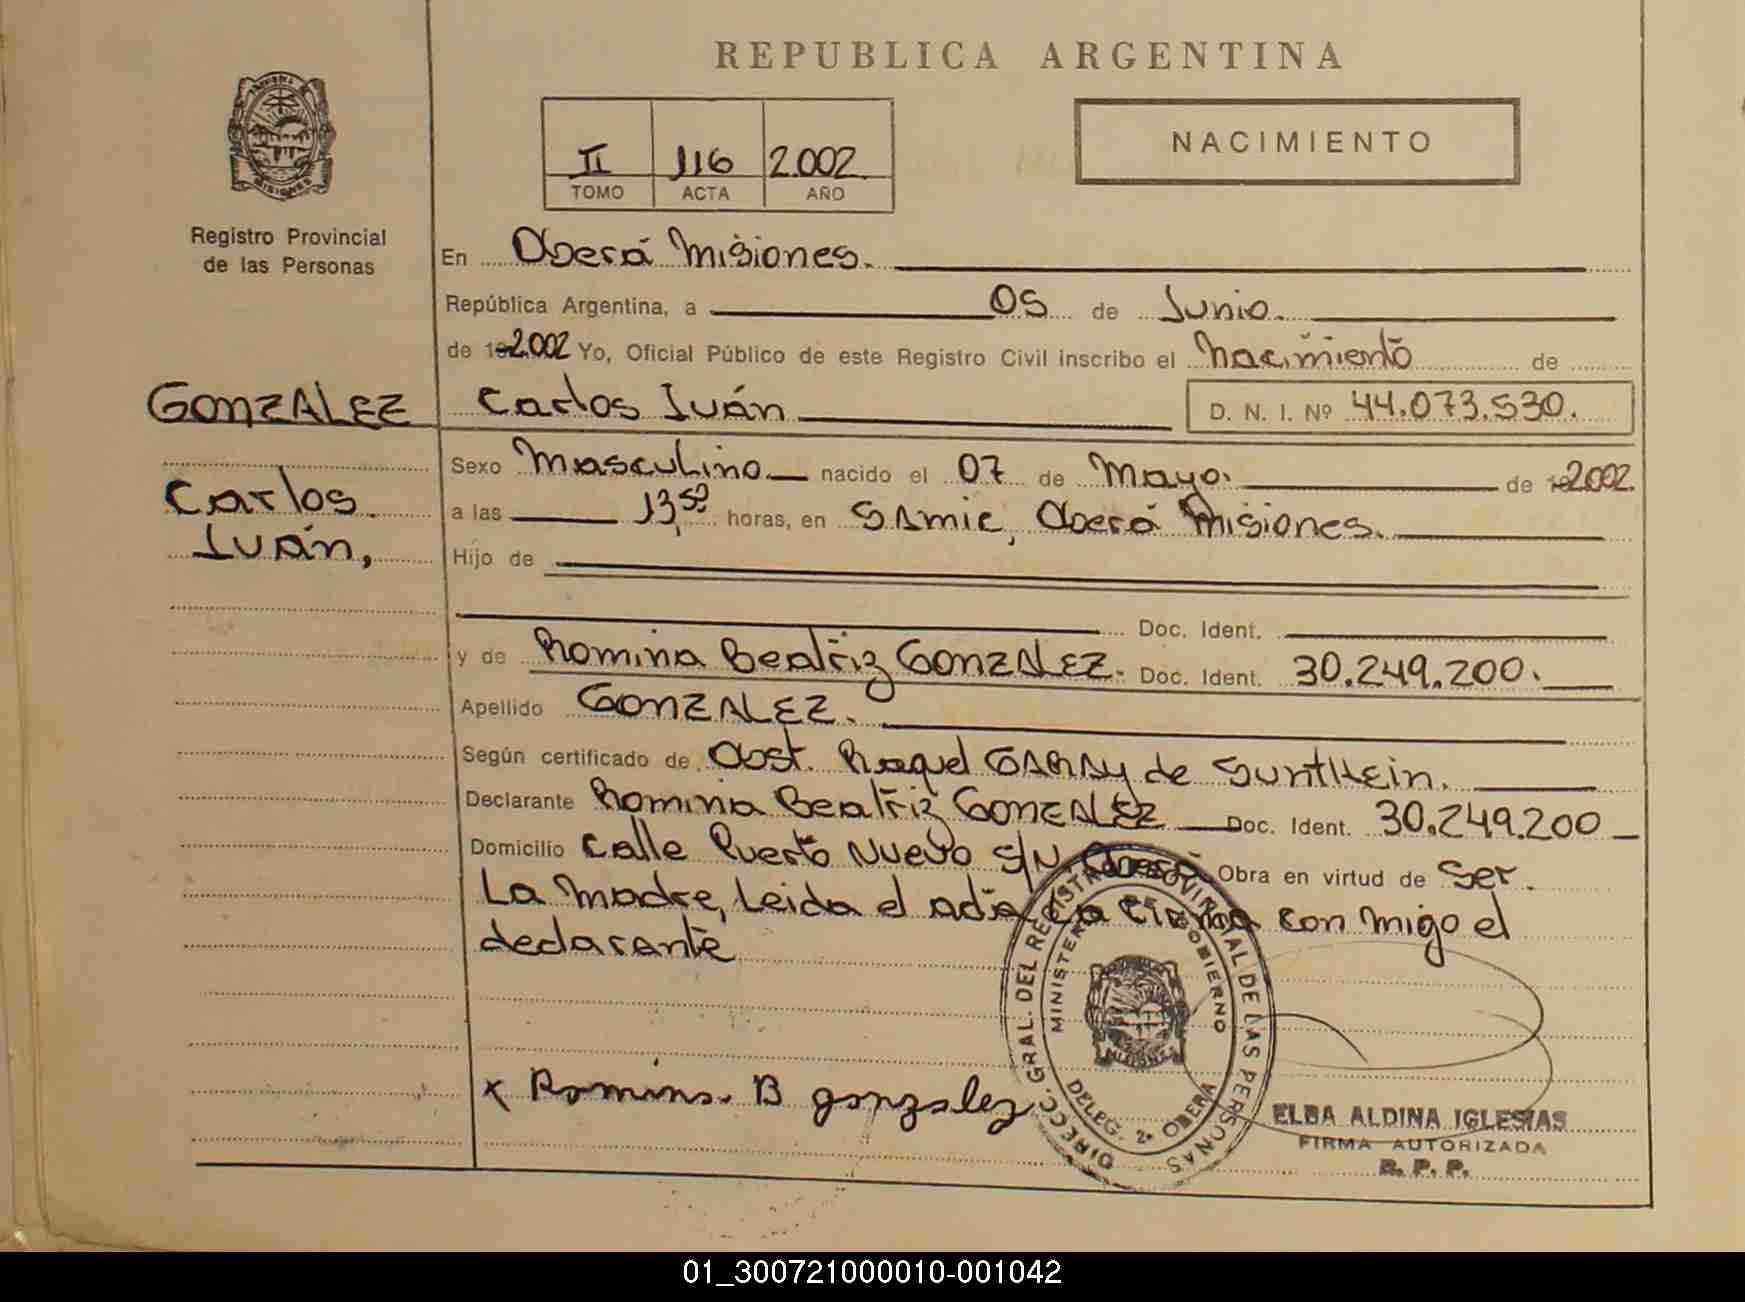 REPUBLICA ARGENTINA
NACIMIENTO
II 116 2.002
TOMO ACTA AÑO
MISIONES
Registro Provincial
de las Personas
GONZALEZ
Carlos
Iván,
En Oberá Misiones.
República Argentina, a 05 de Junio.
de 19 2.002 Yo, Oficial Público de este Registro Civil inscribo el Nacimiento de
Carlos Iván D. N. I. Nº 44.073.530.
Sexo Masculino nacido el 07 de Mayo. de 19 2002.
a las 13,50 horas, en SAMIC, Oberá Misiones.
Hijo de
Doc. Ident.
y de Romina Beatriz GONZALEZ. Doc. Ident. 30.249.200.
Apellido GONZALEZ.
Según certificado de Obst. Raquel GARAY de
Declarante Romina Beatriz GONZALEZ Doc. Ident. 30.249.200
Domicilio Calle Puerto Nuevo S/N Oberá Obra en virtud de Ser.
La Madre, Leida el acta La Firma con migo el
declarante
x Romina. B gonzalez
DIRECC. GRAL. DEL REGISTRO PROVINCIAL DE LAS PERSONAS
MINISTERIO DE GOBIERNO
MISIONES
DELEG. 2ª OBERA
ELBA ALDINA IGLESIAS
FIRMA AUTORIZADA
R. P. P.
01_300721000010-001042